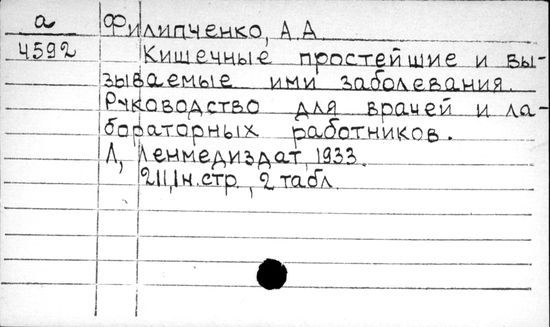 а Филипченко, А.А.
4592 Кишечные простейшие и вы-
зываемые ими заболевания.
Руководство для врачей и ла-
бораторных работников.
Л, Ленмедиздат, 1933.
211, 1н.стр., 2 табл.